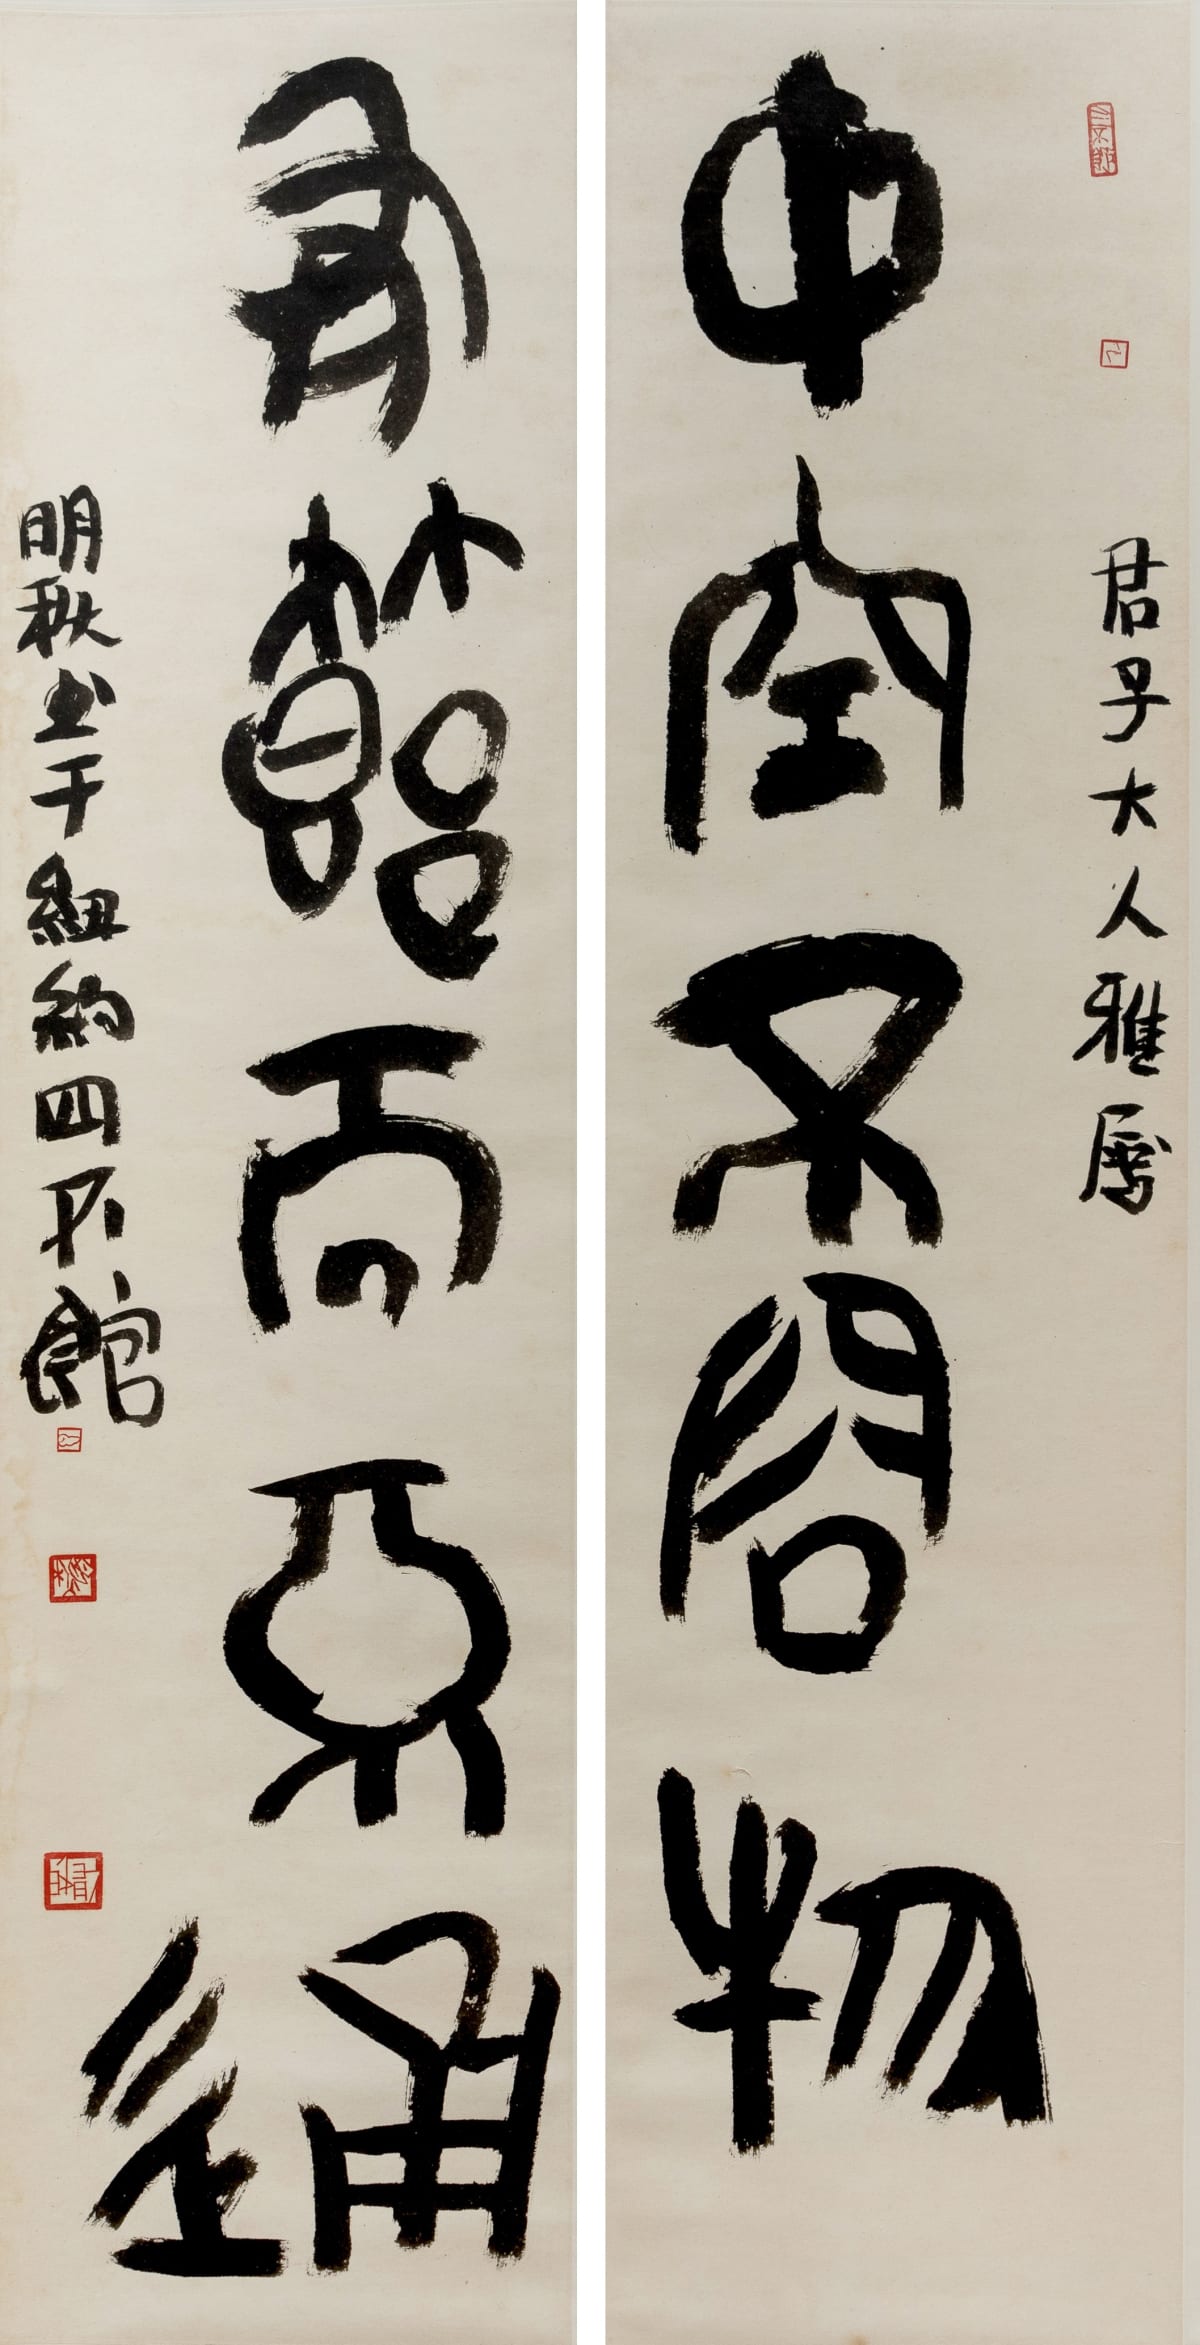 君子大人雅屬
中空不容物
有節而通
明秋书于紐約四不館